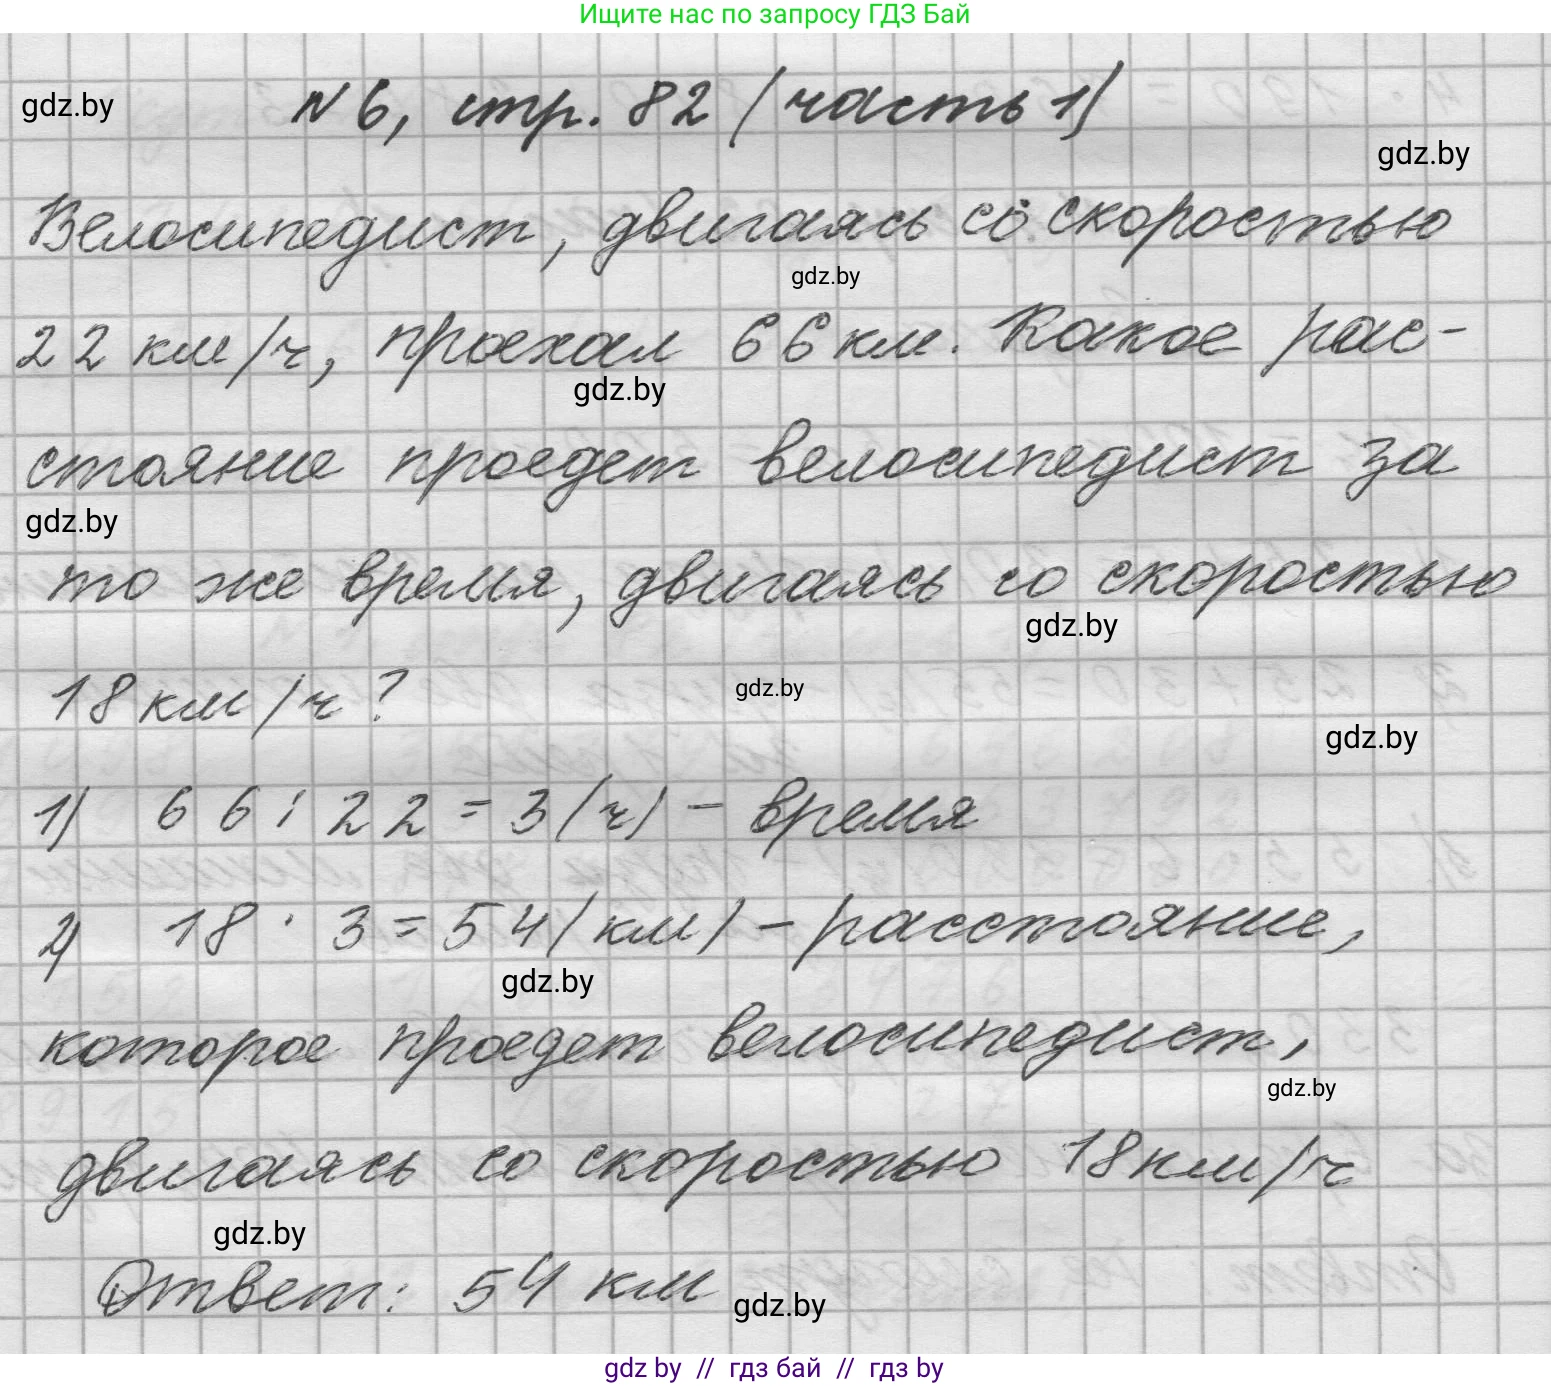 Ищите нас по запросу ГДЗ Бай
gdz.by
№6, стр. 82 (часть 1)
gdz.by
Велосипедист, двигаясь со скоростью
gdz.by
22 км/ч, проехал 66 км. Какое рас-
gdz.by
стояние проедет велосипедист за
gdz.by
то же время, двигаясь со скоростью
gdz.by
18 км/ч?
gdz.by
gdz.by
1) 66 : 22 = 3 (ч) - время
2) 18 · 3 = 54 (км) - расстояние,
gdz.by
которое проедет велосипедист,
gdz.by
двигаясь со скоростью 18 км/ч
gdz.by
Ответ: 54 км
gdz.by
gdz by // гдз бай // гдз by